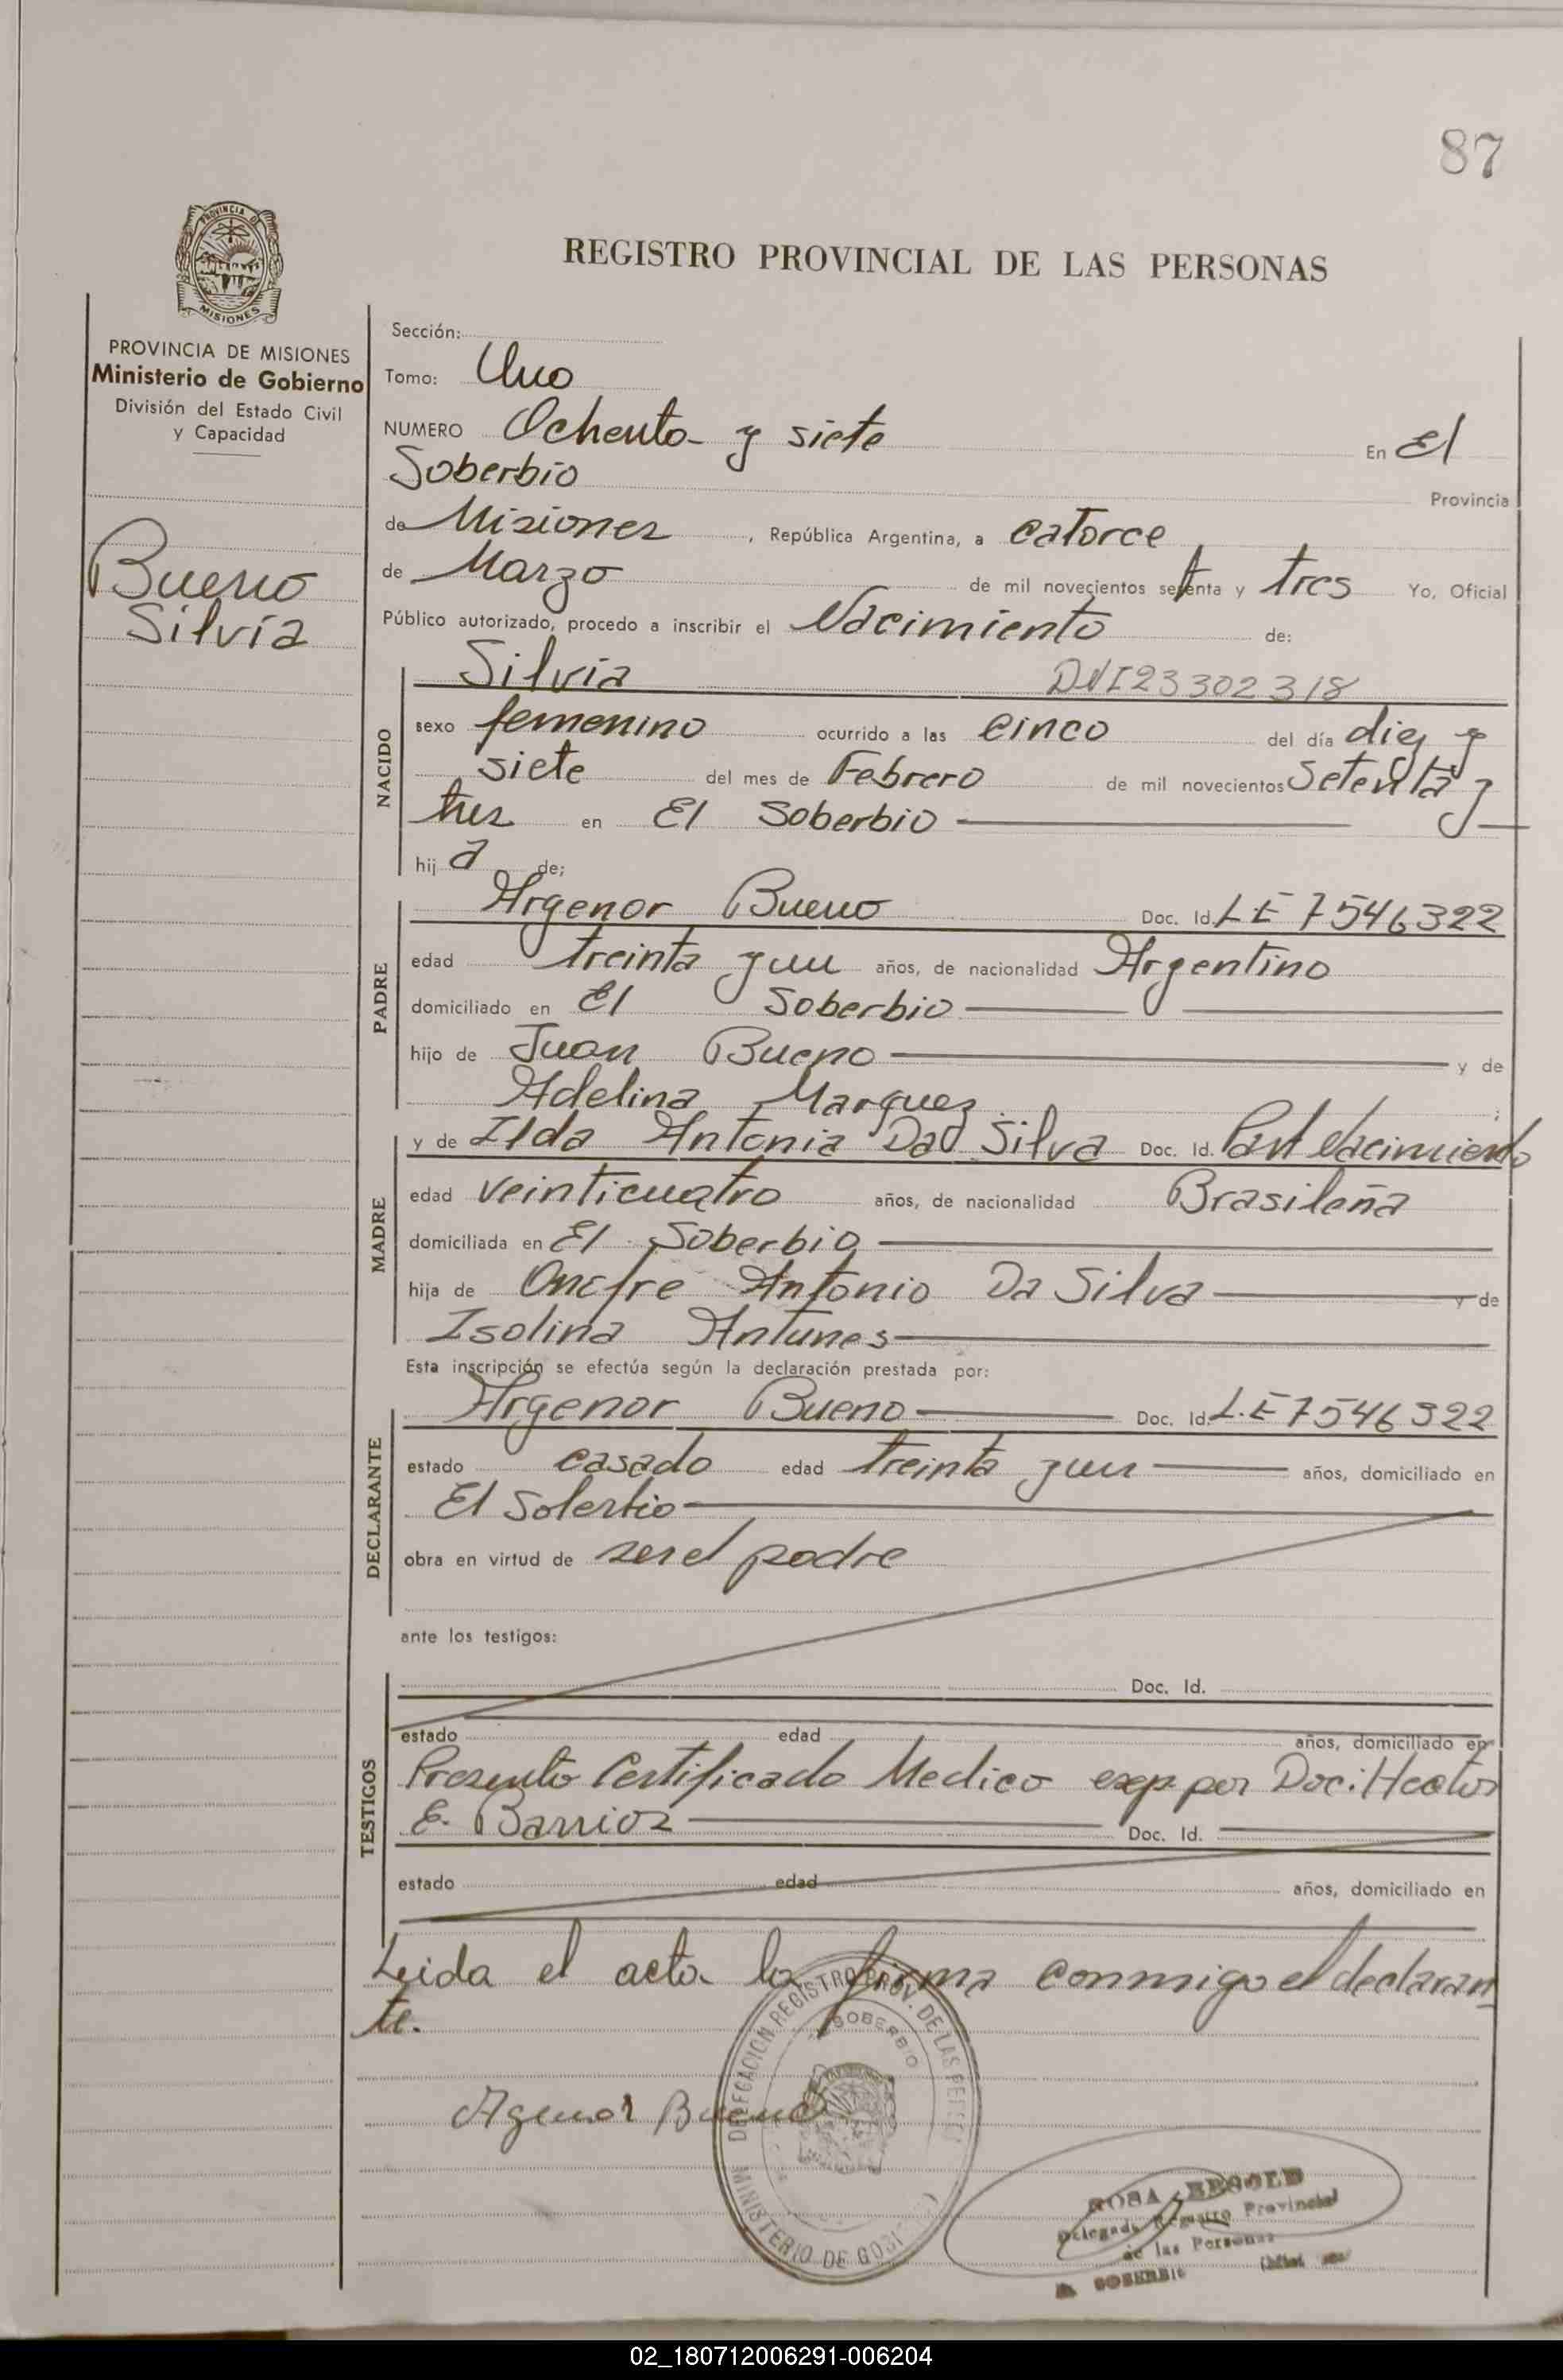 87
PROVINCIA DE
MISIONES
REGISTRO PROVINCIAL DE LAS PERSONAS
PROVINCIA DE MISIONES
Ministerio de Gobierno
División del Estado Civil
y Capacidad
Bueno
Silvia
Sección:
Tomo: Uno
NUMERO Ochenta y siete En El
Soberbio Provincia
de Misiones, República Argentina, a catorce
de Marzo de mil novecientos setenta y tres Yo, Oficial
Público autorizado, procedo a inscribir el Nacimiento de:
NACIDO
Silvia DNI 23302318
sexo femenino ocurrido a las cinco del día diez y
siete del mes de Febrero de mil novecientos setenta y
tres en El Soberbio
hij a de;
PADRE
Argenor Bueno Doc. Id. LE 7546322
edad treinta y un años, de nacionalidad Argentino
domiciliado en El Soberbio
hijo de Juan Bueno y de
Adelina Marquez ;
MADRE
y de Ilda Antonia Da Silva Doc. Id. Part Nacimiento
edad veinticuatro años, de nacionalidad Brasileña
domiciliada en El Soberbio
hija de Onofre Antonio Da Silva y de
Isolina Antunes
Esta inscripción se efectúa según la declaración prestada por:
DECLARANTE
Argenor Bueno Doc. Id. L.E 7546322
estado casado edad treinta y un años, domiciliado en
El Soberbio
obra en virtud de ser el padre
ante los testigos:
TESTIGOS
Doc. Id.
estado edad años, domiciliado en
Presento Certificado Medico exp. por Doc: Hector
E. Barrios Doc. Id.
estado edad años, domiciliado en
Leida el acta la firma conmigo el declaran
te.
DELEGACION REGISTRO PROV. DE LAS
SOBERBIO
MINISTERIO DE
Agenor Bueno
ROSA
Delegada Registro Provincial
de las Personas
SOBERBIO
02_180712006291-006204